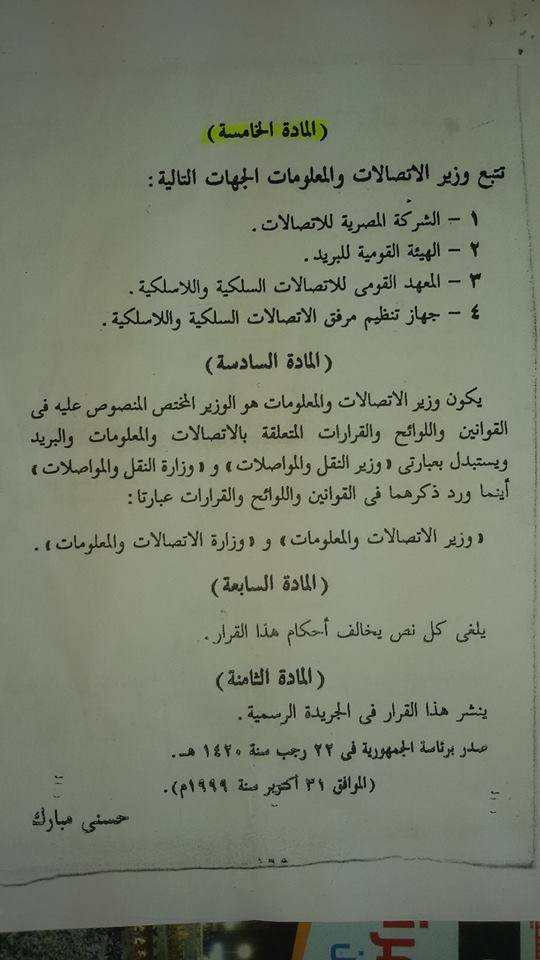 (المادة الخامسة)
تتبع وزير الاتصالات والمعلومات الجهات التالية :
١ – الشركة المصرية للاتصالات .
٢ – الهيئة القومية للبريد .
٣ – المعهد القومى للاتصالات السلكية واللاسلكية .
٤ – جهاز تنظيم مرفق الاتصالات السلكية واللاسلكية .
(المادة السادسة)
يكون وزير الاتصالات والمعلومات هو الوزير المختص المنصوص عليه فى
القوانين واللوائح والقرارات المتعلقة بالاتصالات والمعلومات والبريد
ويستبدل بعبارتى «وزير النقل والمواصلات» و «وزارة النقل والمواصلات»
أينما ورد ذكرهما فى القوانين واللوائح والقرارات عبارتا :
«وزير الاتصالات والمعلومات» و «وزارة الاتصالات والمعلومات» .
(المادة السابعة)
يلغى كل نص يخالف أحكام هذا القرار .
(المادة الثامنة)
ينشر هذا القرار فى الجريدة الرسمية .
صدر برئاسة الجمهورية فى ٢٢ رجب سنة ١٤٢٠ هـ .
(الموافق ٣١ أكتوبر سنة ١٩٩٩م) .
حسنى مبارك